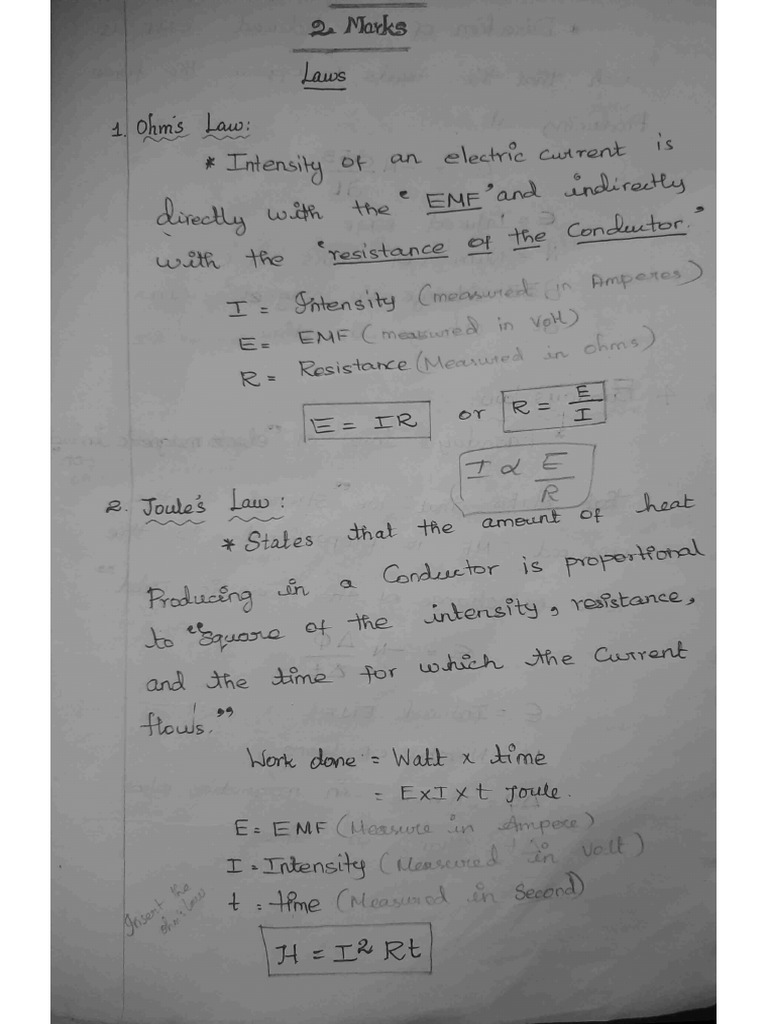 2 Marks
Laws
1. Ohm's Law:
* Intensity of an electric current is
directly with the "EMF" and indirectly
with the "resistance of the Conductor."
I = Intensity (measured in Amperes)
E = EMF (measured in volt)
R = Resistance (Measured in ohms)
E = IR or R = E/I
I ∝ E/R
2. Joule's Law:
* States that the amount of heat
Producing in a Conductor is proportional
to "Square of the intensity, resistance,
and the time for which the Current
flows."
Work done = Watt x time
= E x I x t Joule.
E = EMF (Measure in Ampere)
I = Intensity (Measured in volt)
t = time (Measured in Second)
Insert the
ohm's law
H = I² Rt